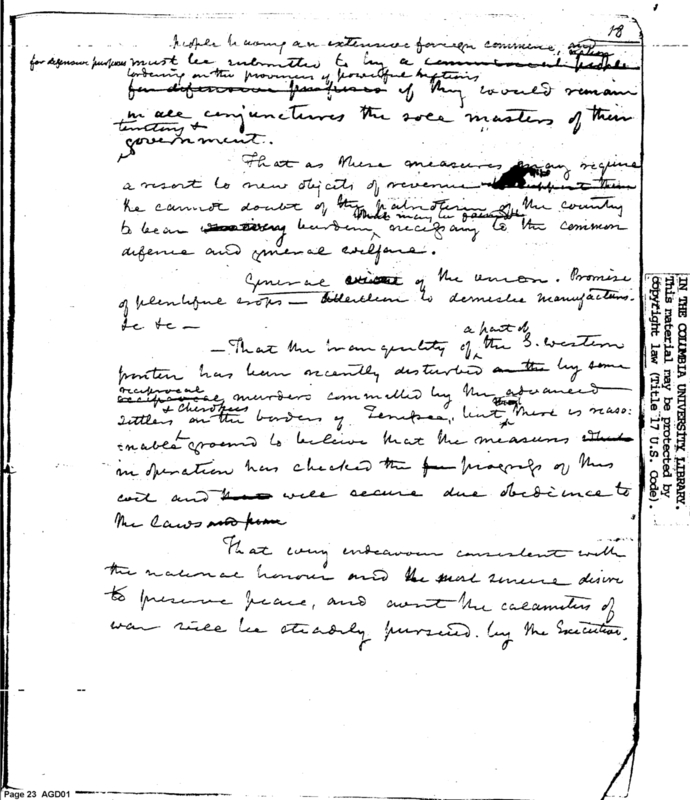 18
people having an extensive foreign commerce, and
for defensive purposes must be submitted to by a commercial people nation
bordering on the provinces of powerful nations
for defensive purposes if they would remain
in all conjunctures the sole masters of their
territory &
government.
That as these measures may require
a resort to new objects of revenue to support them
he cannot doubt of the patriotism of the country
that may be found
to bear every burden, necessary to the common
defence and general welfare.
General of the union. Promise
of plentiful crops — attention to domestic manufactures.
&c &c —
a part of
— That the tranquility of the S. western
frontier has been recently disturbed on the by some
reciprocal
reciprocal murders committed by the advanced
& Cherokees
settlers on the borders of Tenessee, but that there is reaso-
-nable ground to believe that the measures which
in operation has checked the progress of this
evil and have will secure due obedience to
the laws and
That every endeavour consistent with
the national honour and the most sincere desire
to preserve peace, and avert the calamities of
war will be steadily pursued by the Executive.
IN THE COLUMBIA UNIVERSITY LIBRARY.
This material may be protected by
copyright law (Title 17 U.S. Code).
Page 23 AGD01